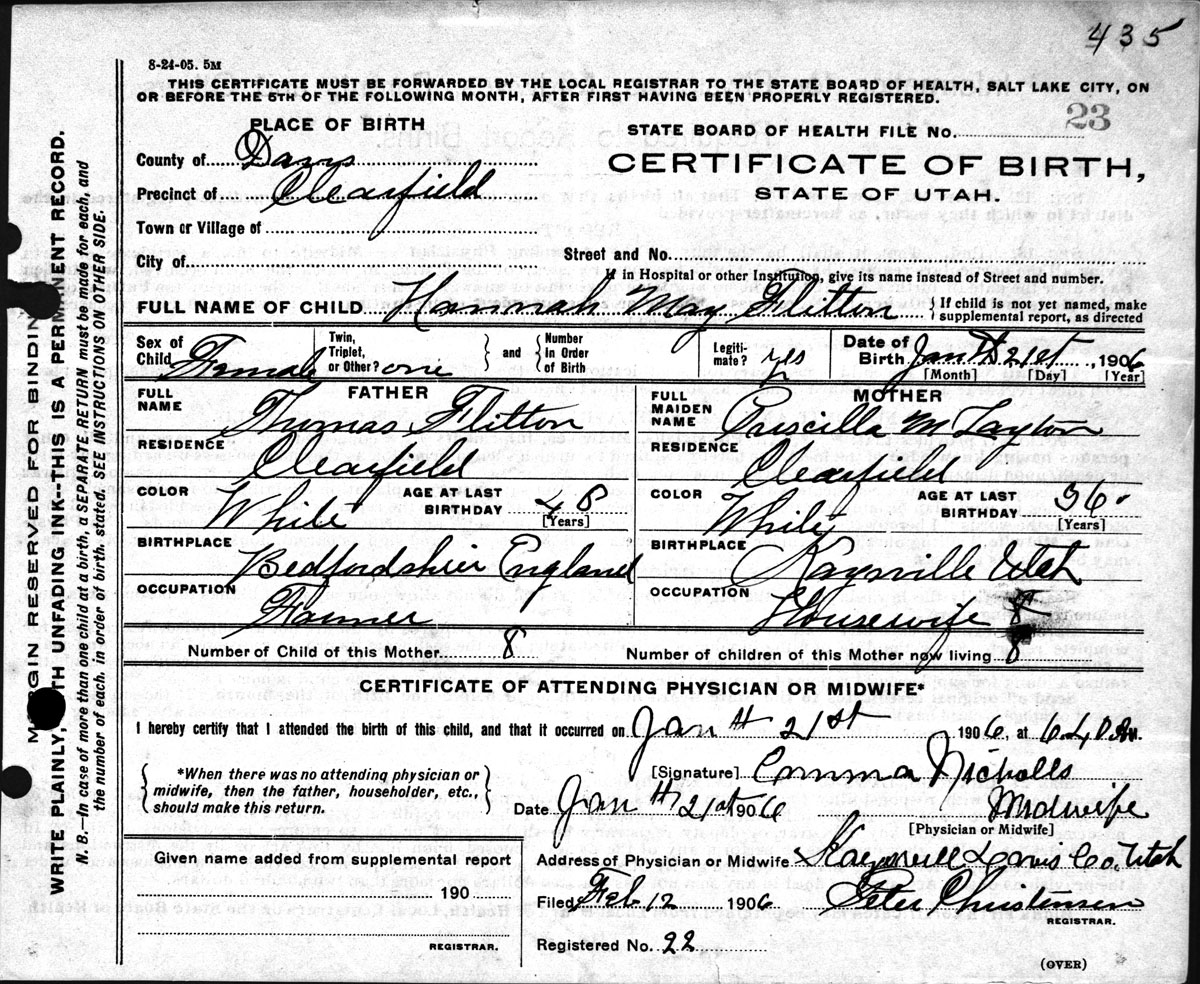 435
8-24-05. 5M
THIS CERTIFICATE MUST BE FORWARDED BY THE LOCAL REGISTRAR TO THE STATE BOARD OF HEALTH, SALT LAKE CITY, ON
OR BEFORE THE 5TH OF THE FOLLOWING MONTH, AFTER FIRST HAVING BEEN PROPERLY REGISTERED.
PLACE OF BIRTH
STATE BOARD OF HEALTH FILE No. 23
County of Davis
CERTIFICATE OF BIRTH,
Precinct of Clearfield
STATE OF UTAH.
Town or Village of
City of
Street and No.
If in Hospital or other Institution, give its name instead of Street and number.
FULL NAME OF CHILD Hannah May Flitton
If child is not yet named, make
supplemental report, as directed
Sex of
Child Female
Twin,
Triplet,
or Other? one
and
Number
In Order
of Birth
Legiti-
mate? yes
Date of
Birth Jan 21st, 1906
[Month] [Day] [Year]
FATHER
FULL
NAME Thomas Flitton
MOTHER
FULL
MAIDEN
NAME Priscilla M Layton
RESIDENCE Clearfield
RESIDENCE Clearfield
COLOR White
AGE AT LAST
BIRTHDAY 48
[Years]
COLOR White
AGE AT LAST
BIRTHDAY 36
[Years]
BIRTHPLACE Bedfordshier England
BIRTHPLACE Kaysville Utah
OCCUPATION Farmer
OCCUPATION Housewife
Number of Child of this Mother 8
Number of children of this Mother now living 8
CERTIFICATE OF ATTENDING PHYSICIAN OR MIDWIFE*
I hereby certify that I attended the birth of this child, and that it occurred on Jan 21st 1906, at 640 AM.
*When there was no attending physician or
midwife, then the father, householder, etc.,
should make this return.
[Signature] Emma Nicholls
Date Jan 21st 1906
Midwife
[Physician or Midwife]
Given name added from supplemental report
190
REGISTRAR.
Address of Physician or Midwife Kaysvill Davis Co. Utah
Filed Feb 12 1906 Peter Christensen
REGISTRAR.
Registered No. 22
(OVER)
MARGIN RESERVED FOR BINDING
WRITE PLAINLY, WITH UNFADING INK--THIS IS A PERMANENT RECORD.
N. B.—In case of more than one child at a birth, a SEPARATE RETURN must be made for each, and
the number of each, in order of birth, stated. SEE INSTRUCTIONS ON OTHER SIDE.